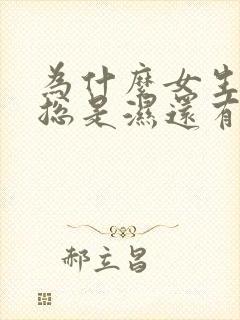 為什麼女生
總是濕還有
郝立昌